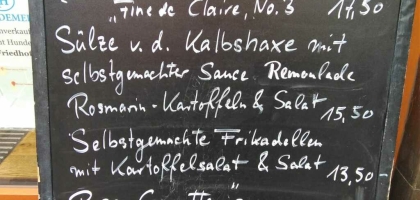 "Fine de Claire, No. 3 17,50
Sülze v. d. Kalbshaxe mit
selbstgemachter Sauce Remoulade
Rosmarin-Kartoffeln & Salat 15,50
Selbstgemachte Frikadellen
mit Kartoffelsalat & Salat 13,50